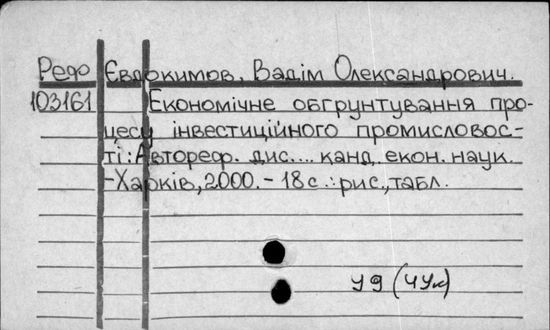 Рефо Євдокимов, Вадім Олександрович.
103161 Економічне обгрунтування про-
цесу інвестиційного промисловос-
ті: Автореф. дис.... канд. екон. наук.
-Харків, 2000. - 18 с. : рис., табл.
У9 (4Ук)